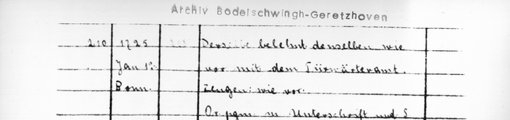 Archiv Bodelschwingh-Geretzhoven
210 1725 Derselbe belehnt denselben wie
Jan 12. vor mit dem Türwärteramt.
Bonn. Zeugen: wie vor.
Or. pgm. m. Unterschrift und S